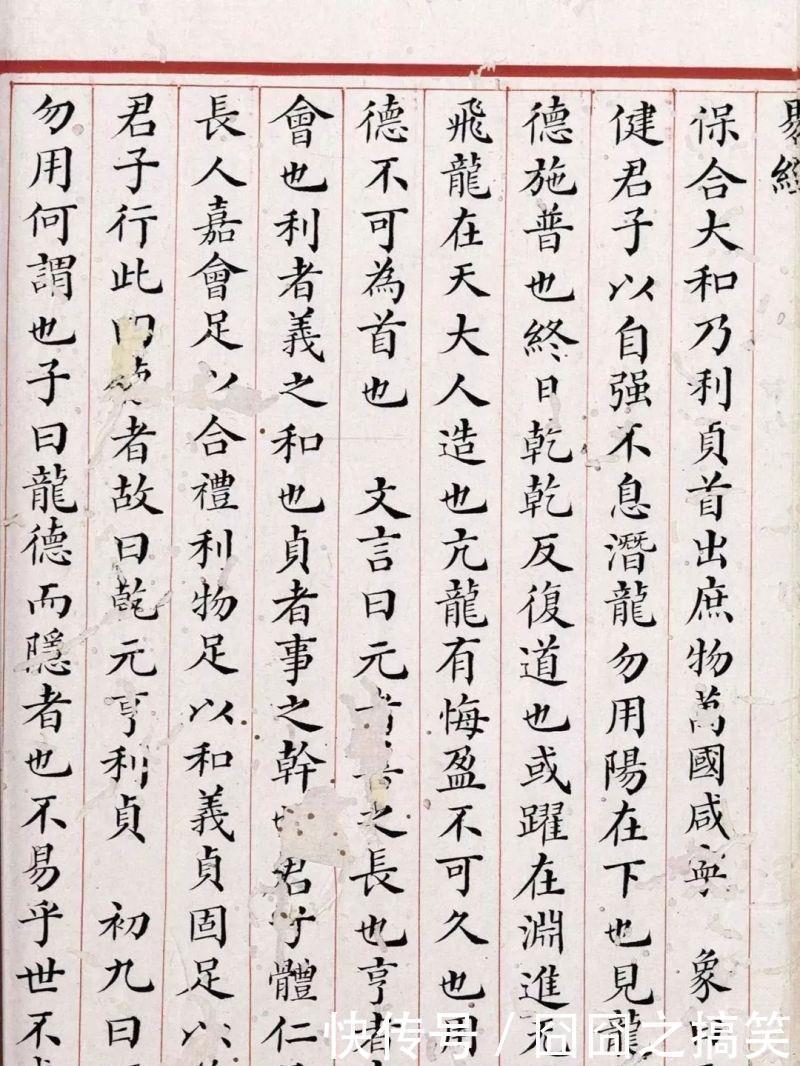 易經
保合大和乃利貞首出庶物萬國咸寧 象曰
健君子以自强不息潛龍勿用陽在下也見龍
德施普也終日乾乾反復道也或躍在淵進无
飛龍在天大人造也亢龍有悔盈不可久也用
德不可為首也 文言曰元者善之長也亨者
會也利者義之和也貞者事之幹也君子體仁
長人嘉會足以合禮利物足以和義貞固足以
君子行此四德者故曰乾元亨利貞 初九曰
勿用何謂也子曰龍德而隱者也不易乎世不
快传号/囧囧之搞笑